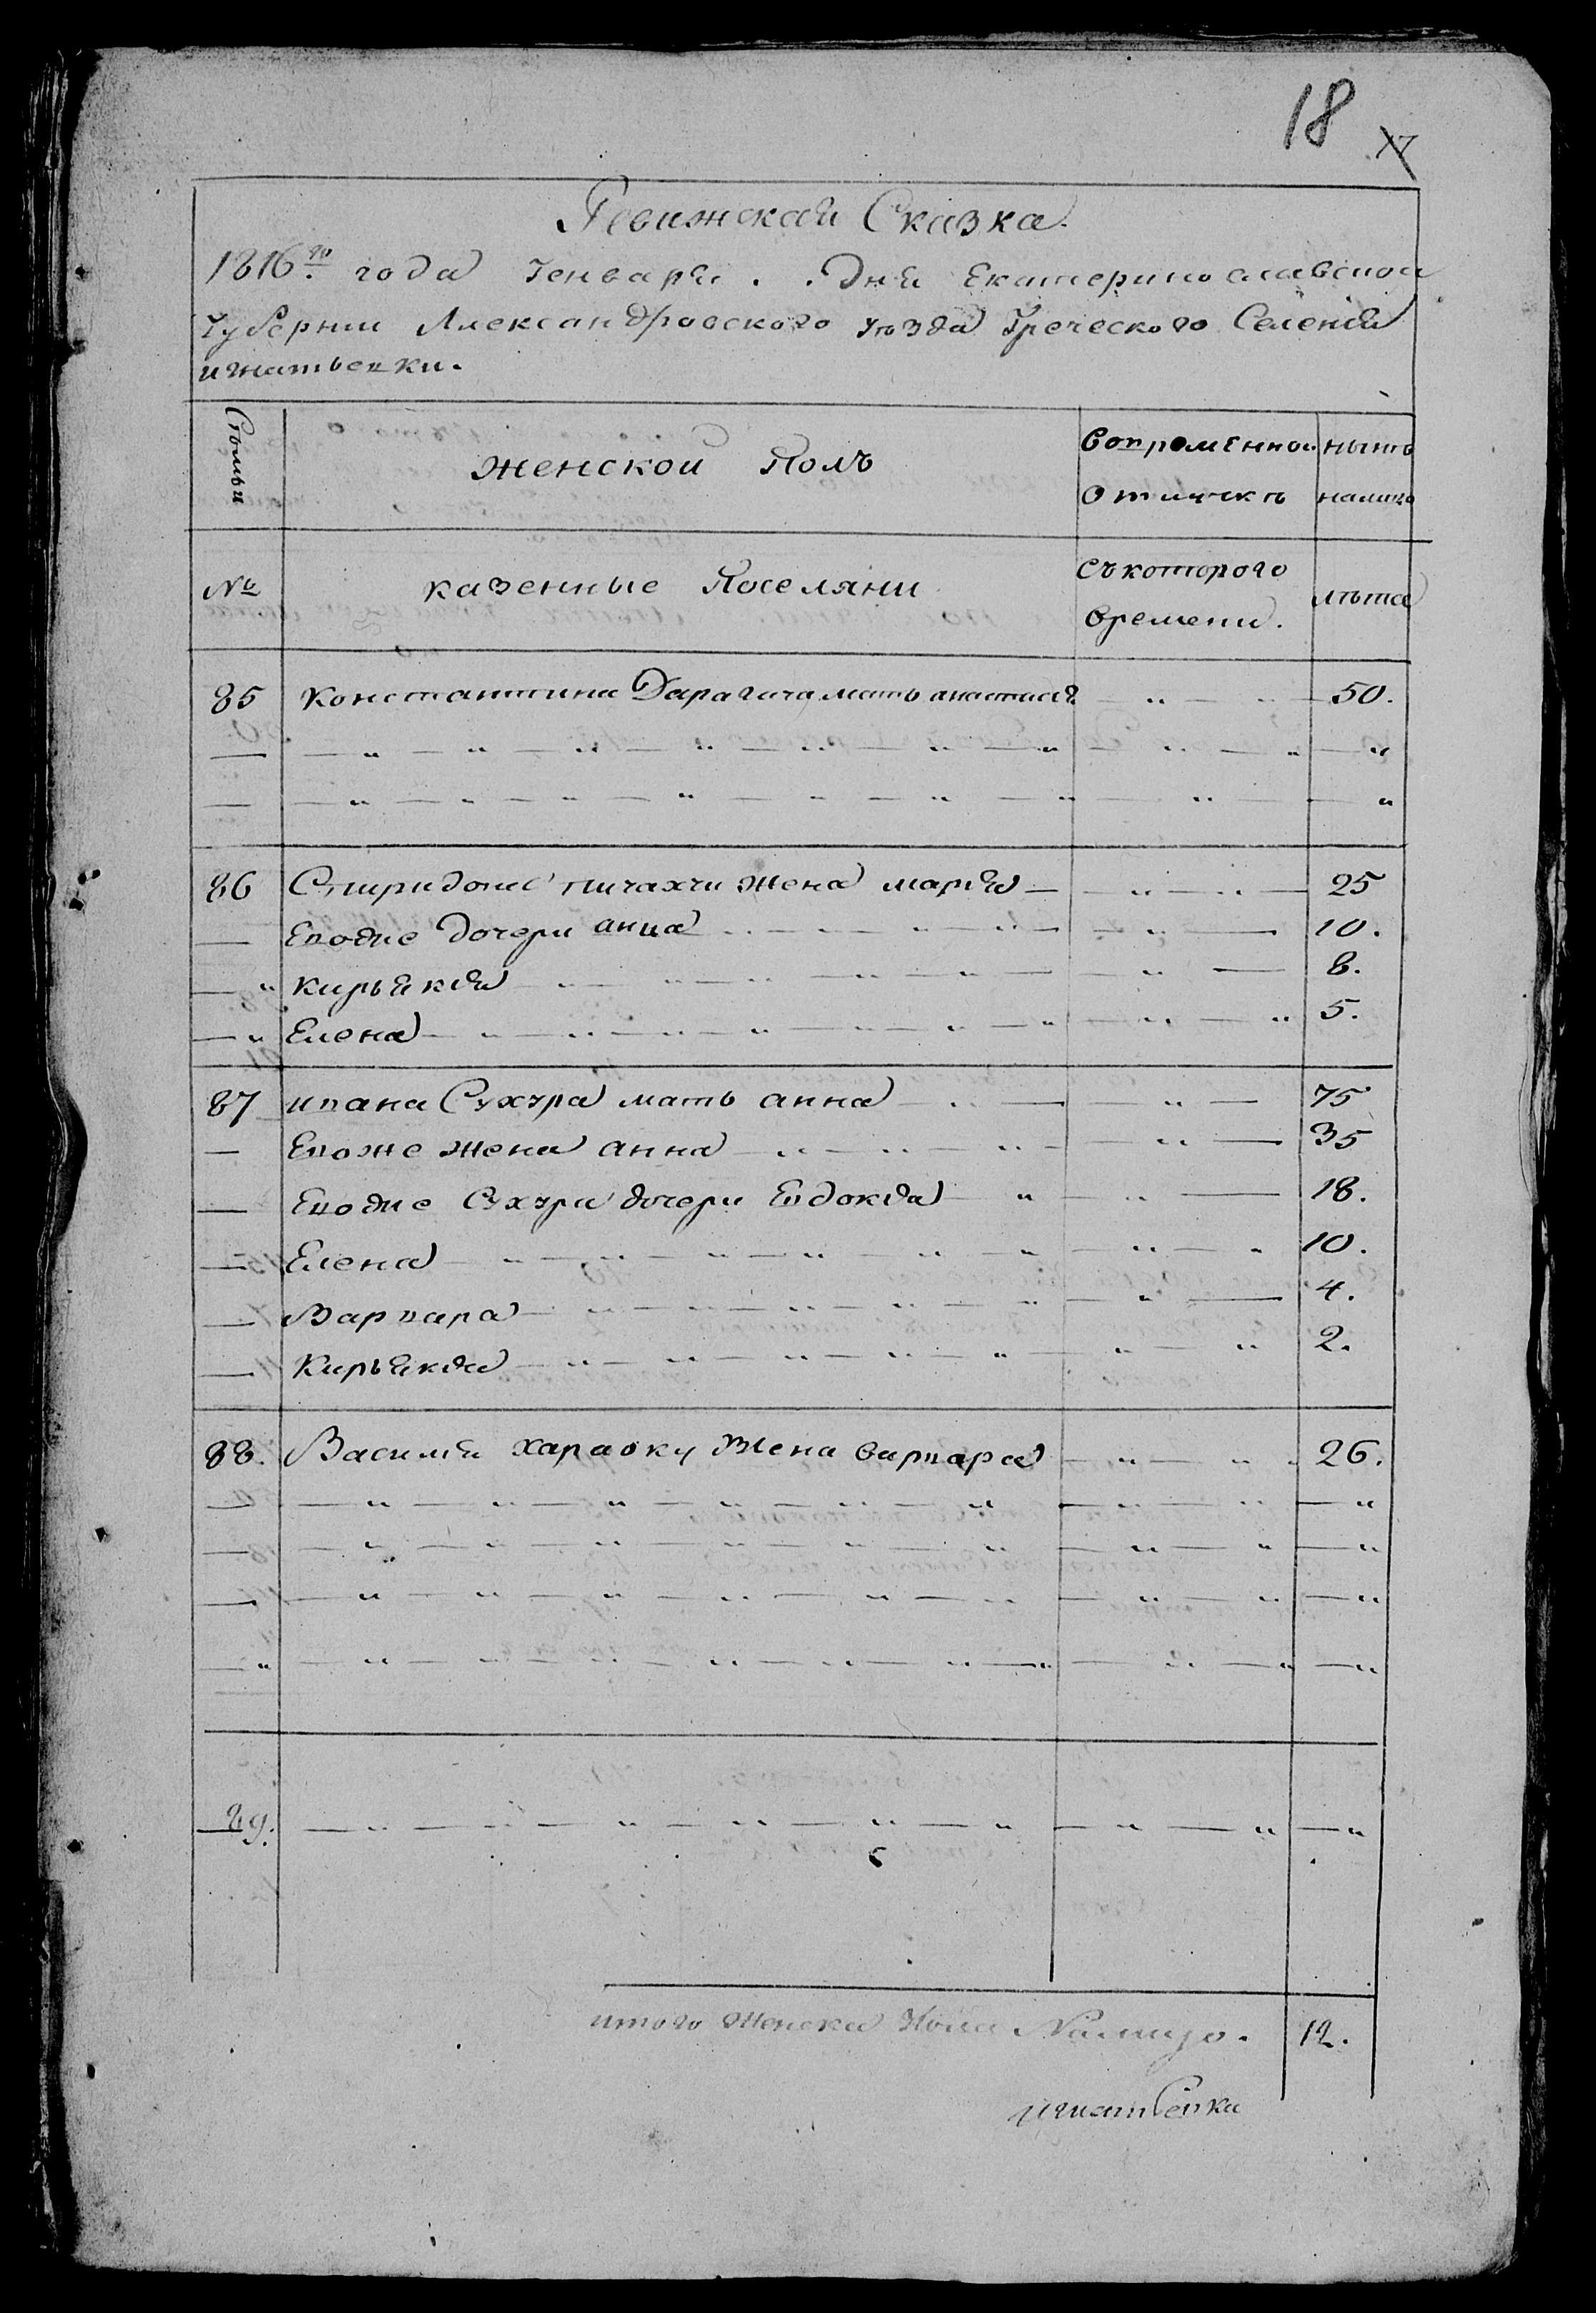 18 17
Ревижская Сказка.
1816го года Генваря . . Дня Екатеринославской
Губернии Александровского уѣзда Греческого Селения
игнатьевки.
женской Полъ
вовременной ныне
отлучкѣ налицо
№ казенные Поселяни
съ которого
времени.
лѣта
85 Константина Дарагича мать анастасия 50.
86 Спиридона пичахчи жена мария 25
Его же дочери анна 10.
кирьякия 8.
Елена 5.
87 ивана Сухура мать анна 75
Его же жена анна 35
Его же Сухура дочери Евдокия 18.
Елена 10.
Варвара 4.
Кирьякия 2.
88. Василия хараоку жена варвара 26.
89.
итого женска пола Налицо. 12.
игнатьевка